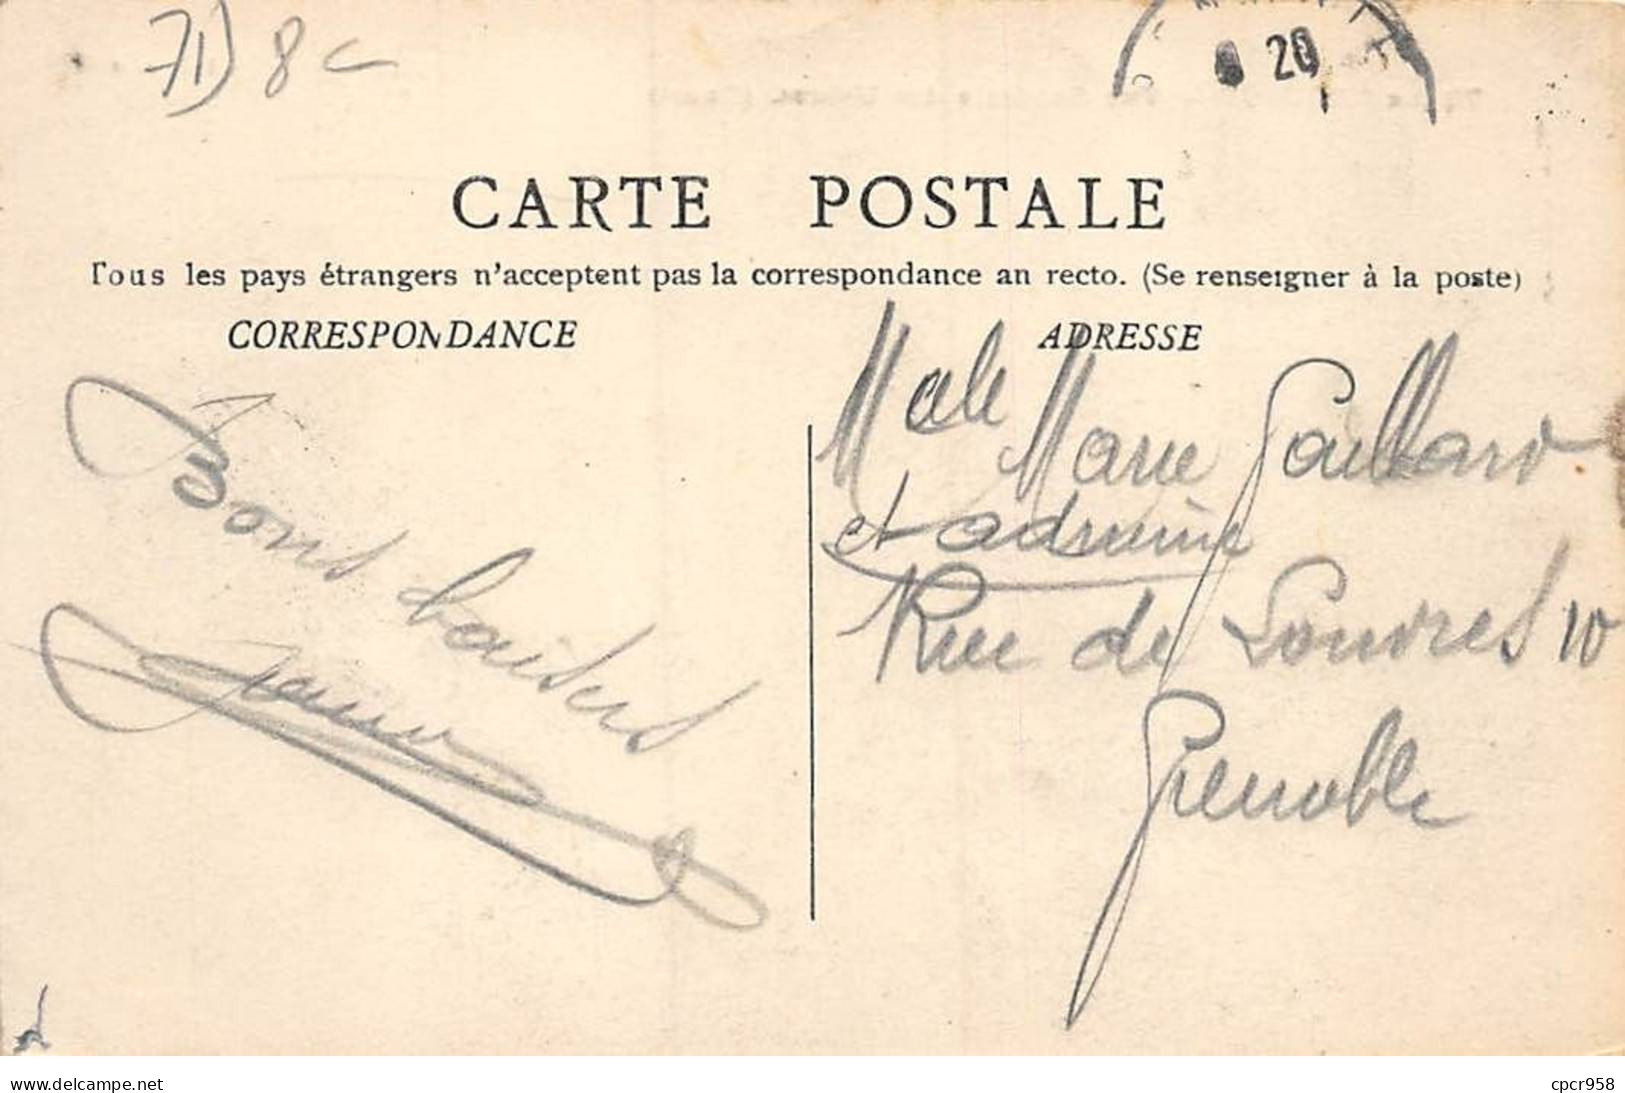 71) 8
20
CARTE POSTALE
Tous les pays étrangers n'acceptent pas la correspondance an recto. (Se renseigner à la poste)
CORRESPONDANCE
Bons baisers
ADRESSE
Marie Gaillard
et
Rue de Londres 10
Grenoble
www.delcampe.net
cpcr958